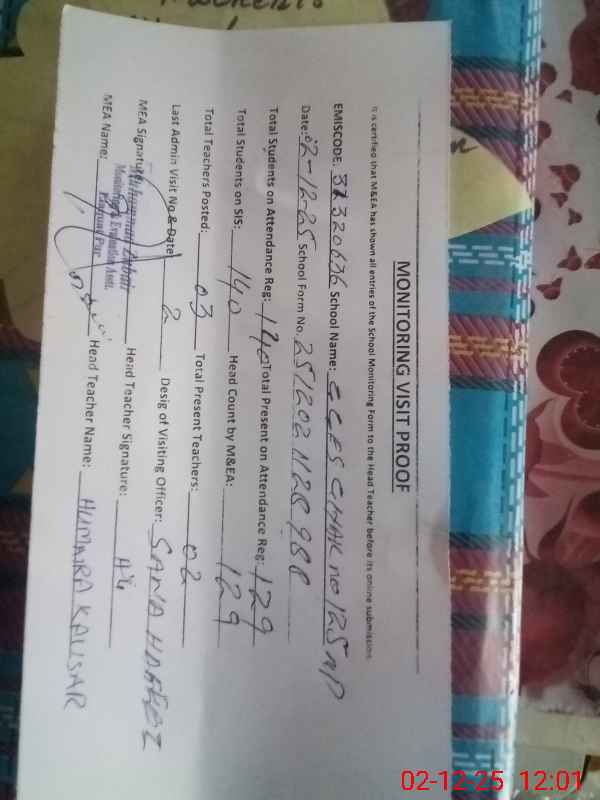 MONITORING VISIT PROOF
It is certified that M&EA has shown all entries of the School Monitoring Form to the Head Teacher before its online submission
EMISCODE: 31320676 School Name: GGES CHAK no 125 NP
Date: 02-12-25 School Form No. 251202 1128 988
Total Students on Attendance Reg: 140 Total Present on Attendance Reg: 129
Total Students on SIS: 140 Head Count by M&EA: 129
Total Teachers Posted: 03 Total Present Teachers: 02
Last Admin Visit No & Date 2 Desig of Visiting Officer: SANA HAFEEZ
MEA Signature: Head Teacher Signature:
Monitoring & Evaluation Asstt.
MEA Name: Head Teacher Name: HUMAIRA KAUSAR
02-12-25 12:01